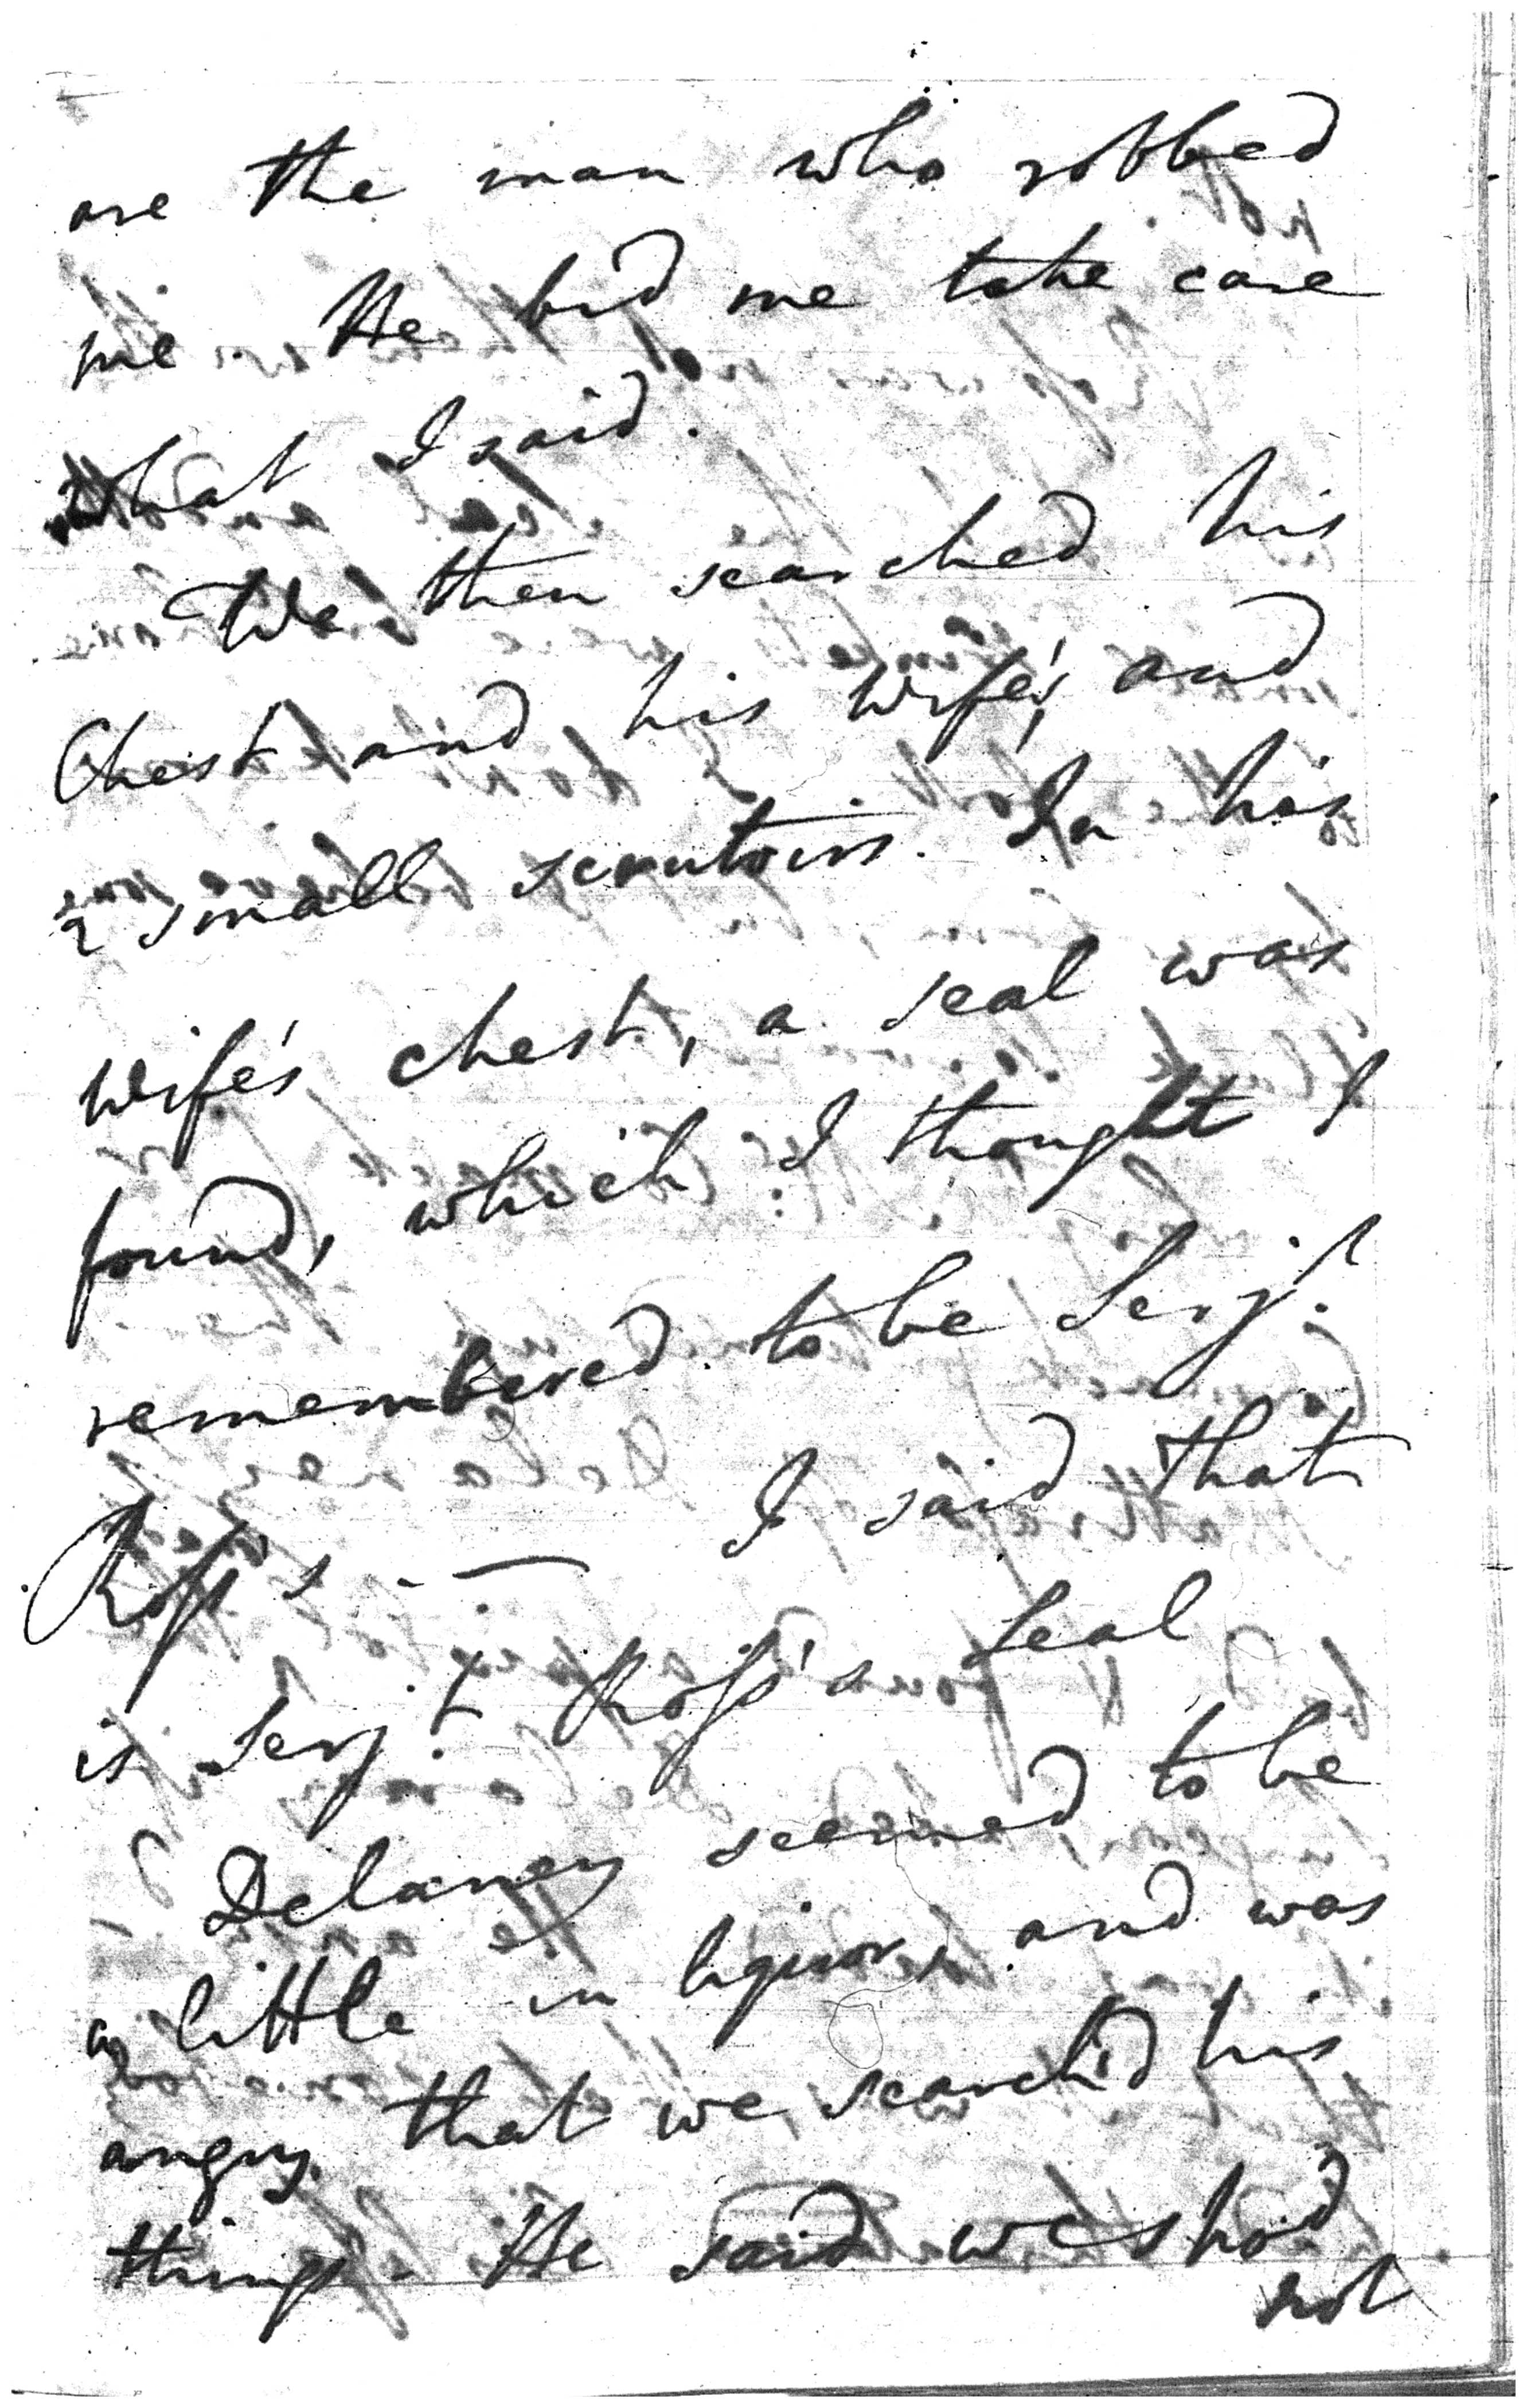 are the man who robbed
me. He bid me take care
what I said.
We then searched his
Chest and his wife's, and
2 small scrutoirs. In his
wife's chest, a seal was
found, which I thought I
remembered to be Serj.t
Ross's. — I said that
is Serj.t Ross's Seal
Delaney seemed to be
a little in liquor, and was
angry that we search'd his
things. He said we sho'd
not